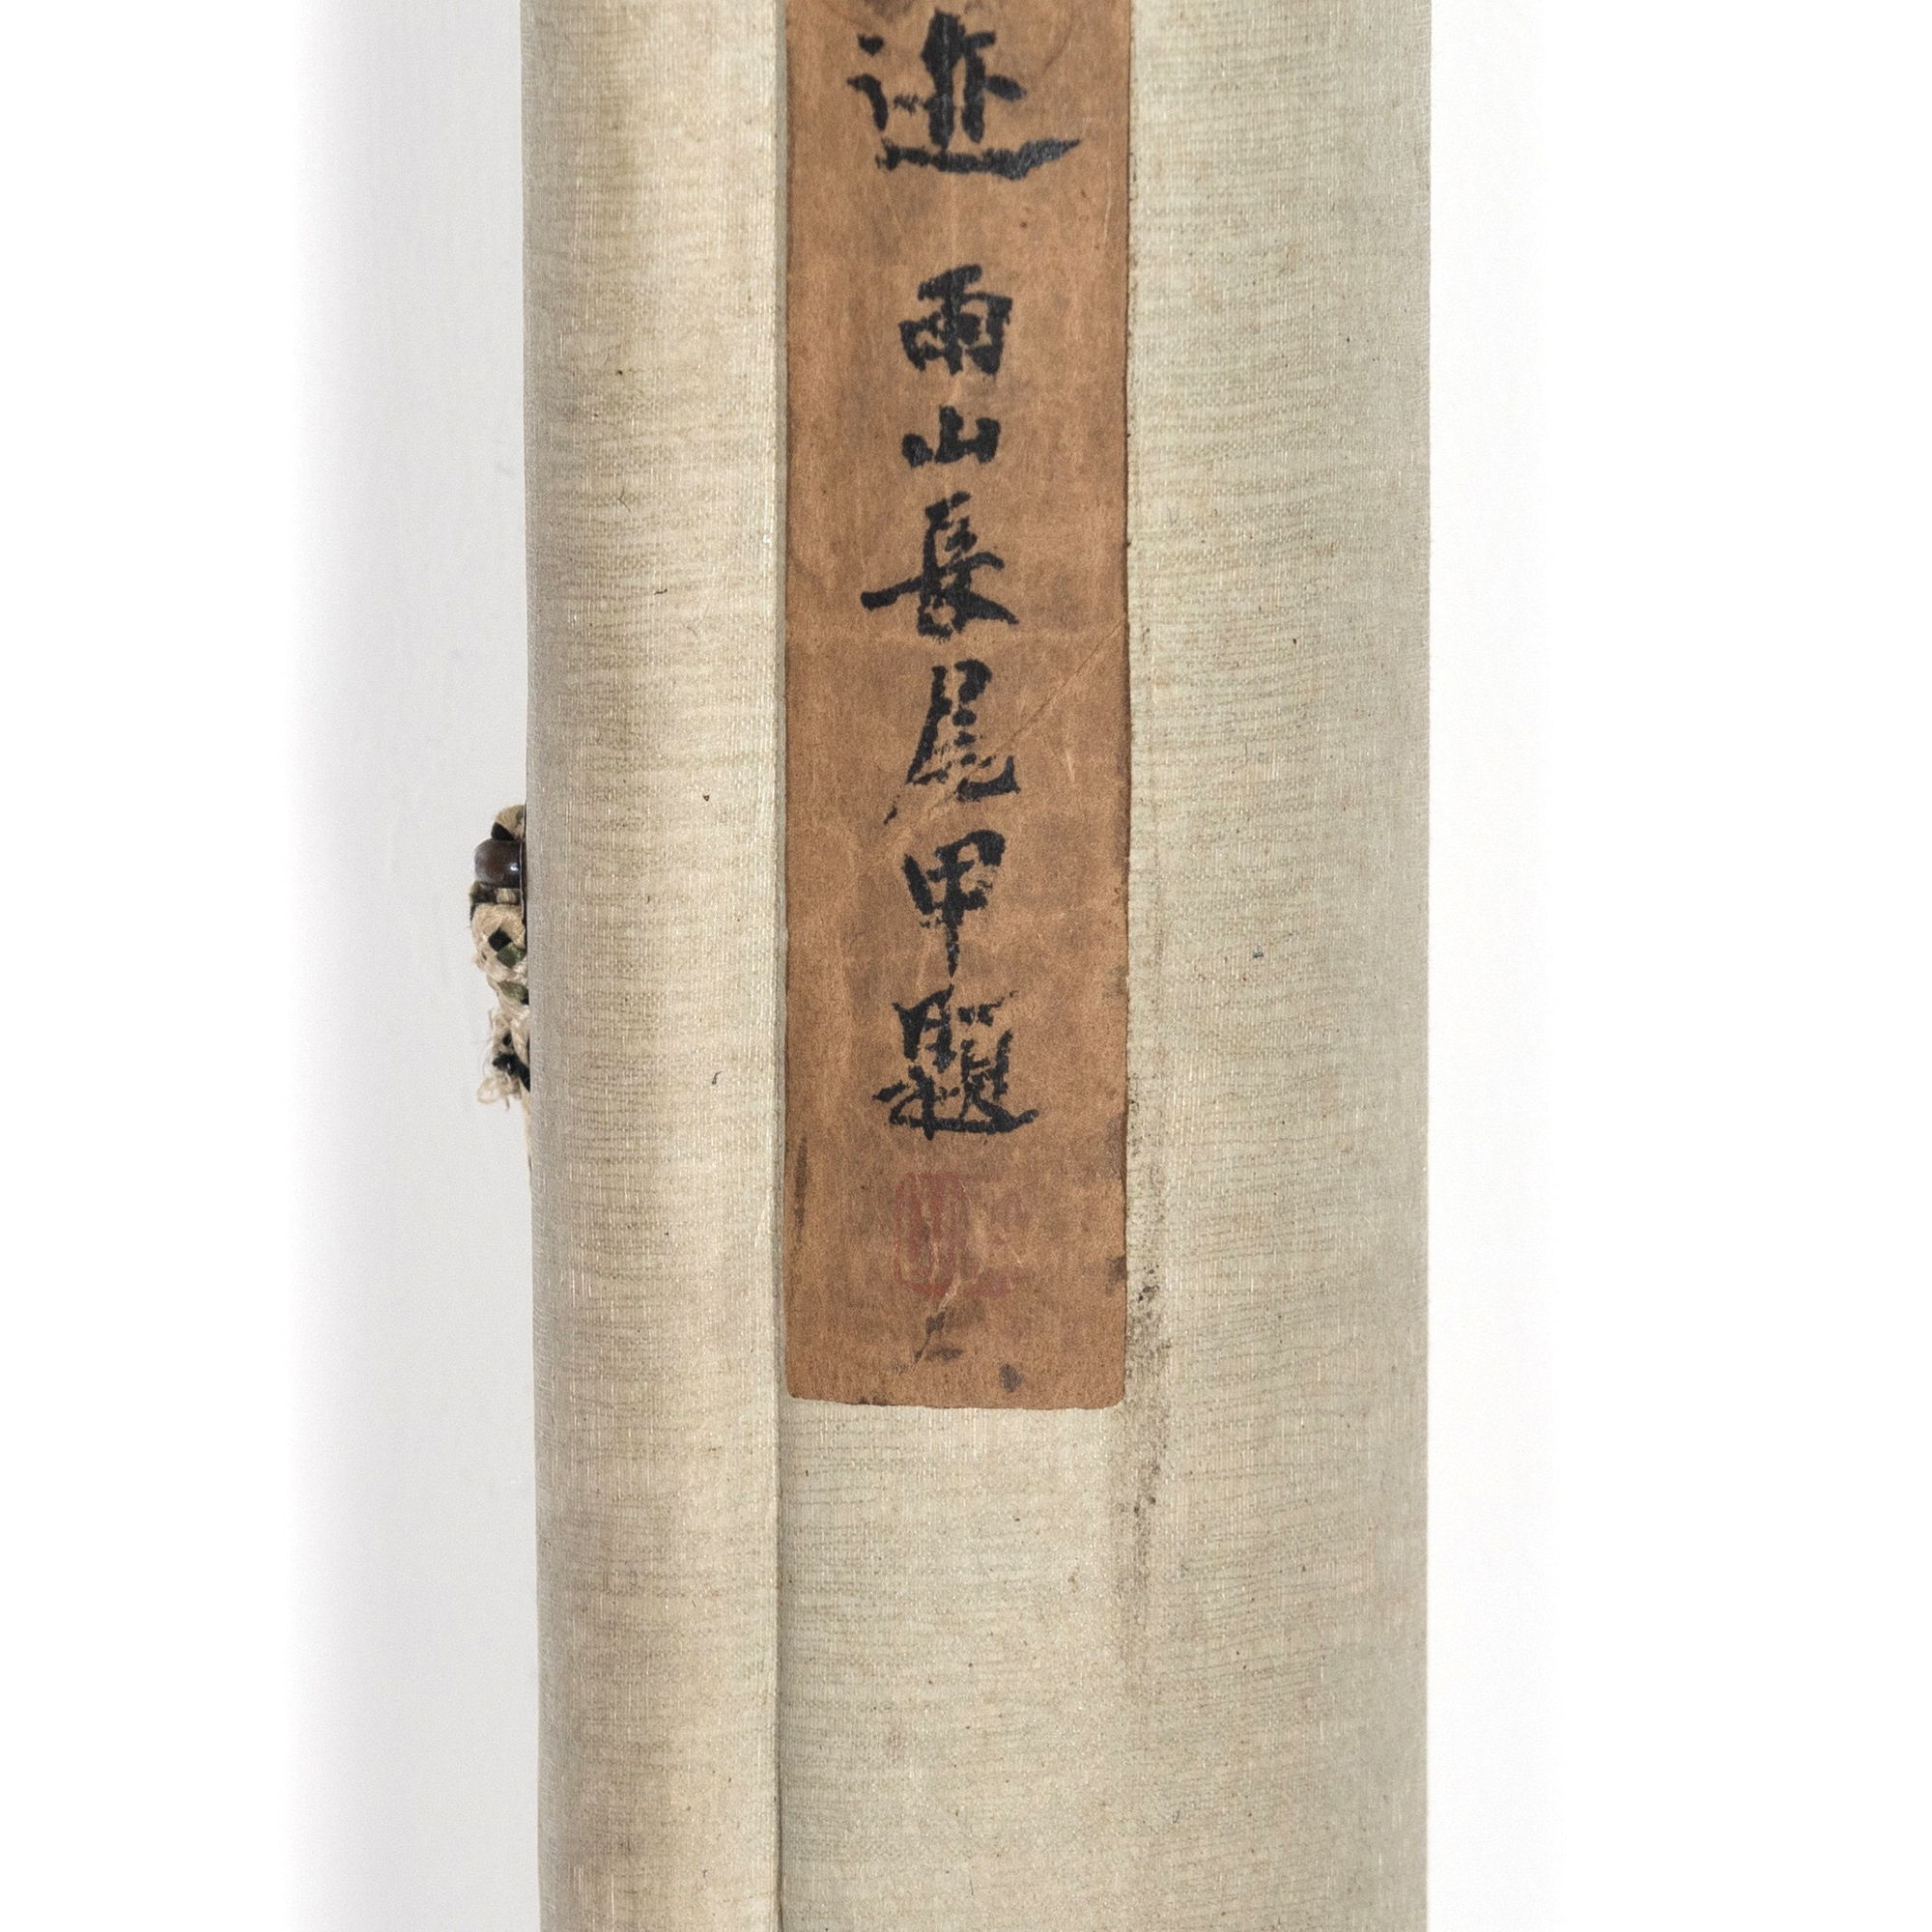 迹 雨山長尾甲題